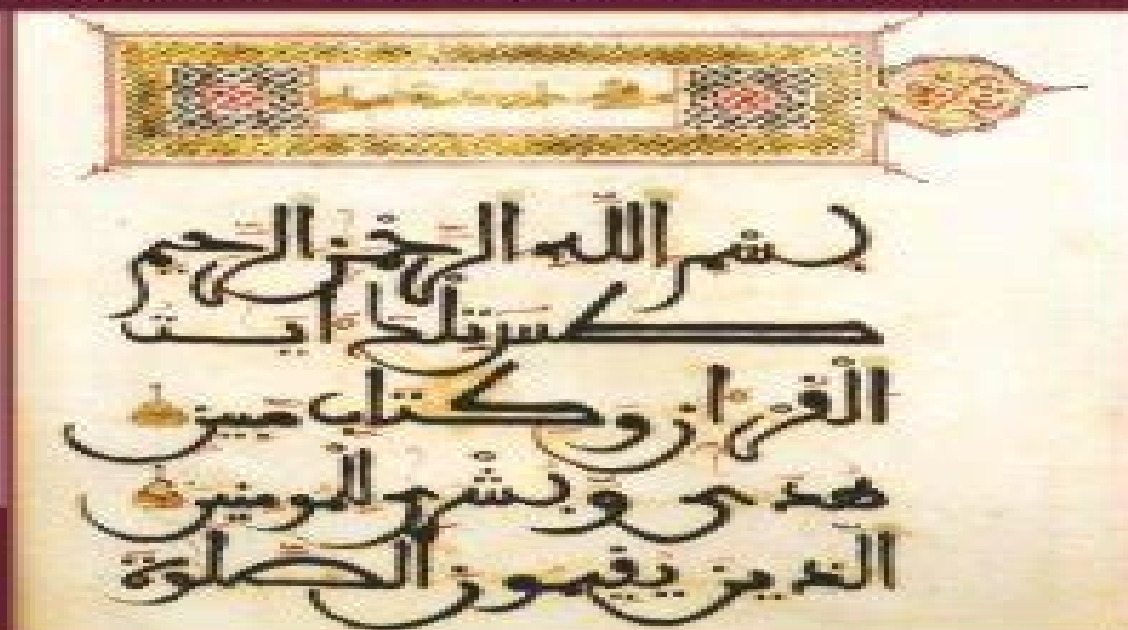 بسم الله الرحمن الرحيم
طس تلك ايت
القران وكتاب مبين
هدى وبشرى للمومنين
الذين يقيمون الصلوة